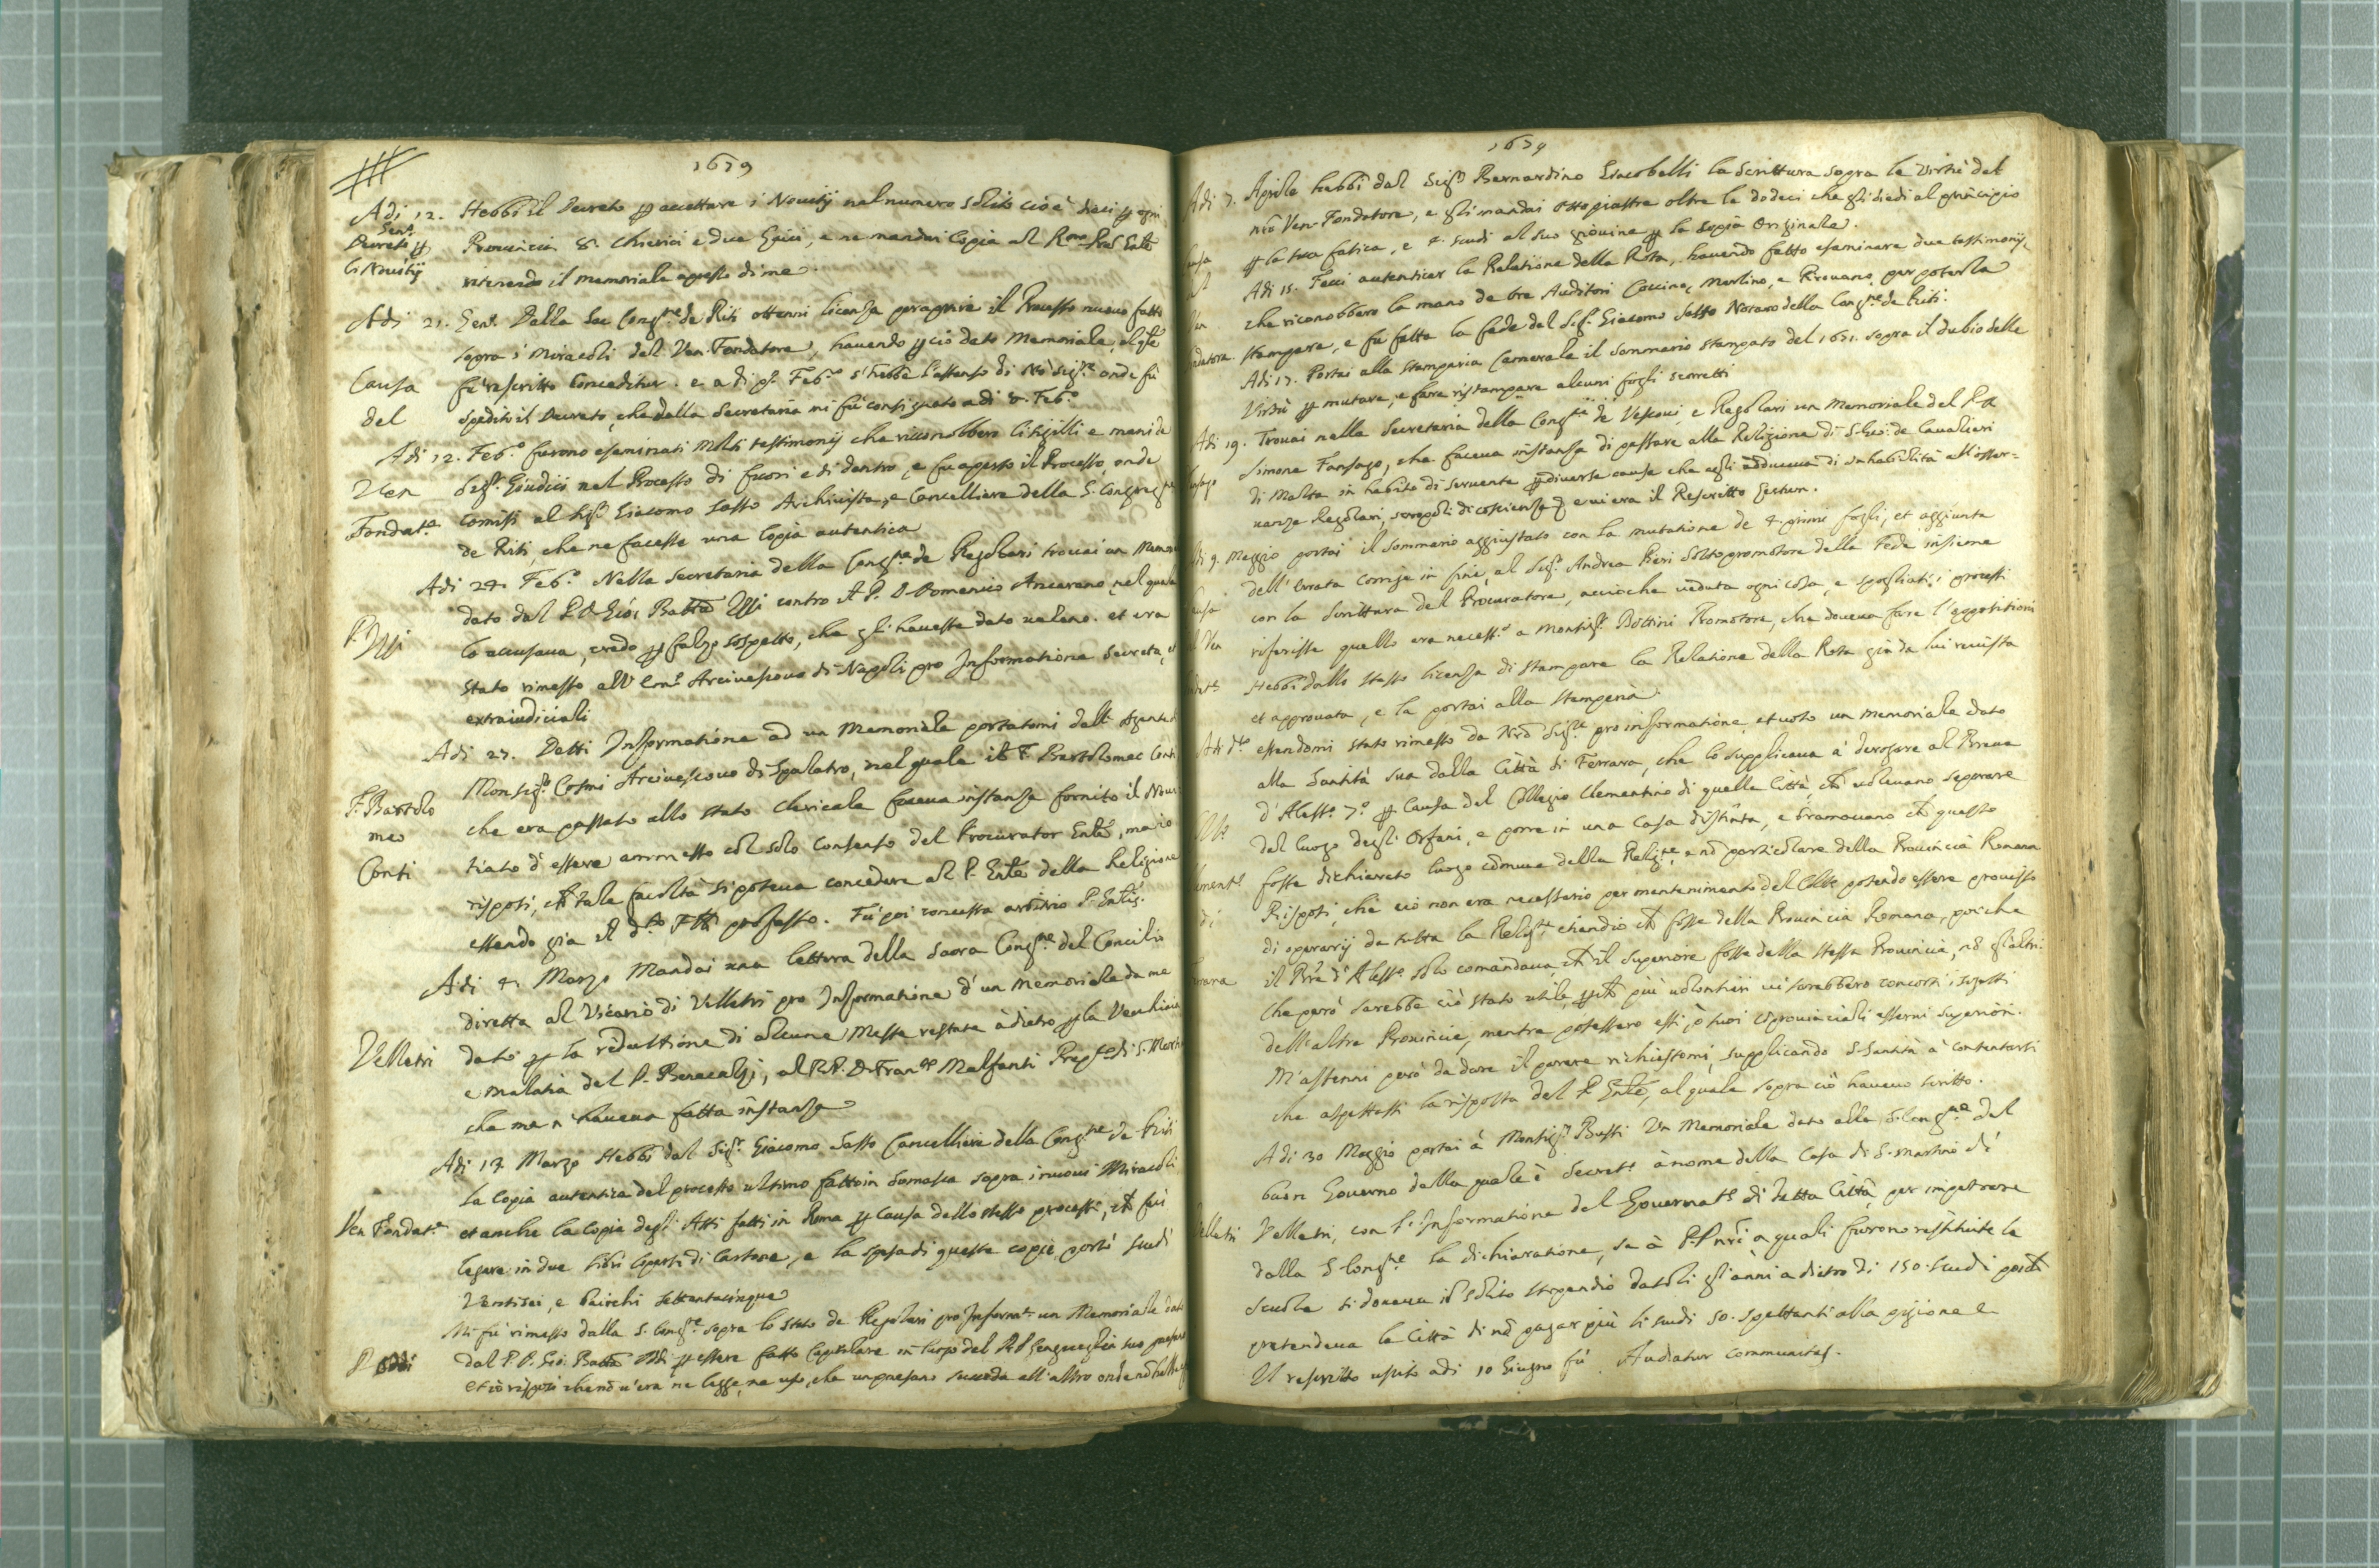 1679
Adi 12. Hebbi il Decreto p accettare i Nouitij nel numero solito cioè dieci p ogni
Gen.º
Decreto p Prouincia 8. Chierici e due laici, e ne mandai Copia al Rmo Pre Gnle
li Nouitij ritenendo il memoriale apresso di me.
Adi 21. Genº. Dalla Sac Congne de Riti ottenni licenza per aprire il Processo nuouo fatto
sopra i miracoli del Ven. Fondatore, hauendo p ciò dato Memoriale, al qle
Causa fù rescritto Conceditur. e a di pº Febº s'hebbe l'assenso di Nrõ Sigre onde fù
del spedito il Decreto, che dalla Secretaria mi fù consignato adi 8. Febº
Adi 12. Febº furono esaminati molti testimonij che riconobbero li sigilli e mani de
Ven Sigri Giudici nel Processo di fuori e di dentro, e fu aperto il Processo, onde
Fondate comisi al Sigr Giacomo Sasso Archiuista, e Cancelliere della S. Congregne
de Riti, che ne facesse una Copia autentica
Adi 24. Febº Nella Secretaria della Congne de Regolari trouai un Memori
dato dal P. D. Gio: Batta contro il P. D. Domenico Ancarano, nel quale
lo accusaua, credo p falso sospetto, che gli hauesse dato ueleno. et era
stato rimesso all' Emº Arciuescouo di Napoli pro Informatione secreta, et
extraiudiciali
Adi 27. Datti Informatione ad un Memoriale portatomi dall' Agente di
Monsigr Cosmi Arciuescouo di Spalatro, nel quale il F. Bartolomeo Conti
F. Bartolo
meo che era passato allo stato clericale faceua instanza fornito il Noui
Conti tiato d'essere ammesso col solo consenso del Procurator Gnle, ma io
risposi, che tale facoltà si poteua concedere al P. Gnle della Religione
essendo già il dto professo. Fù poi concessa arbitrio P. Gnlis.
Adi 4. Marzo Mandai una lettera della Sacra Congne del Concilio
diretta al Vicario di Velletri pro Informatione d'un Memoriale da me
Velletri dato p la reduttione di alcune Messe restate adietro p la Vecchiaia
e malatia del P. al R.P. D. Franco Malfanti Prepto di S. Martino
che me n'haueua fatta instanza
Adi 17 Marzo Hebbi dal Sigr Giacomo Sasso Cancelliere della Congne de Riti
la Copia autentica del processo ultimo fatto in Somasca sopra i nuoui Miracoli
Ven Fondate et anche la Copia degli Atti fatti in Roma p causa dello stesso processo, che feci
legare in due libri coperti di Cartone, e la spesa di queste copie portò scudi
Ventisei, e baiochi settantacinque
Mi fù rimesso dalla S. Congne sopra lo stato de Regolari pro Informat. un Memoriale dato
P. Oddi dal P. D. Gio: Batta Oddi p essere fatto Capitolare in luogo del
et io risposi che nõ u'era ne legge, ne uso, che un paesano succeda all'altro onde nõ
1679
Adi 7. Aprile hebbi dal Sigr Bernardino Giacobelli la Scrittura sopra le Virtù del
nrõ Ven Fondatore, e gli mandai otto piastre oltre le dodeci che gli diedi al principio
p la sua fatica, e 4. scudi al suo giouine p la Copia Originale.
Adi 15. Feci autenticar la Relatione della Rota, hauendo fatto esaminare due testimonij,
che riconobbero la mano de tre Auditori Coccino, Merlino, e Pirouano, per poterla
datore. stampare, e fù fatta la fede del Sigr Giacomo Sasso Notaro della Congne de Riti.
Adi 17. Portai alla Stamparia Camerale il Sommario stampato del 1671. sopra il dubio delle
Virtù p mutare, e fare ristampare alcuni fogli scorretti
Adi 19. Trouai nella Secretaria della Congne de Vescoui, e Regolari un Memoriale del P. D.
Simone Fansago, che faceua instanza di passare alla Religione di S. Gio: de Caualieri
di Malta in habito di seruente p diuerse cause che egli adduceua di inhabilità all'osser=
uanza Regolari, scropoli di coscienza & e ui era il Rescritto Lectum.
di 9. Maggio portai il Sommario aggiustato con la mutatione de 4. primi fogli, et aggiunta
dell'errata corrige in fine, al Sigr Andrea Pieri Sottopromotore della Fede insieme
con la Scrittura del Procuratore, accioche ueduta ogni cosa, e spogliati i processi
riferisse quello era necesso a Monsigr Bottini Promotore, che doueua fare l'oppositioni
Hebbi dallo stesso licenza di stampare la Relatione della Rota già da lui reuista
et approuata, e la portai alla stamperia.
Adi dto essendomi stato rimesso da Nrõ Sigre pro informatione, et uoto un memoriale dato
alla Santità sua dalla Città di Ferrara, che lo supplicaua a derogare al Breue
d'Alessº 7º p causa del Collegio Clementino di quella Città, che uoleuano separare
dal luogo degli Orfani, e porre in una Casa distinta, e bramauano che questo
fosse dichiarato luogo cõmune della Religne, e nõ particolare della Prouincia Romana
Risposi, che ciò non era necessario per mantenimento del Collo potendo essere prouisto
di di operarij da tutta la Religne etiandio che fosse della Prouincia Romana, poiche
il Bre d'Alesso solo comandaua, che il superiore fosse della stessa Prouincia, nõ gl'altri:
Che però sarebbe ciò stato utile, pche più uolontieri ui sarebbero concorsi i sogetti
dell'altre Prouincie, mentre potessero essi, o suoi Coprouinciali esserui superiori.
M'astenni però da dare il parere richiestomi, supplicando S. Santità à contentarsi
che aspettassi la risposta del P. Gnle, al quale sopra ciò haueuo scritto.
Adi 30 Maggio portai à Monsigr Bussi Un Memoriale dato alla S. Congne del
buon Gouerno della quale è Secreto à nome della Casa di S. Martino di
Velletri, con l'Informatione del Gouernatre di detta Città, per impetrare
dalla S. Congne la dichiaratione, se à P.P. nri a quali furono restituite le
scuole si doueua il solito stipendio datoli gl'anni adietro di 150. scudi poiche
pretendeua la Città di nõ pagar più li scudi 50. spettanti alla pigione &
Il rescritto uscito adi 10 Giugno fù Audiatur Communitas.